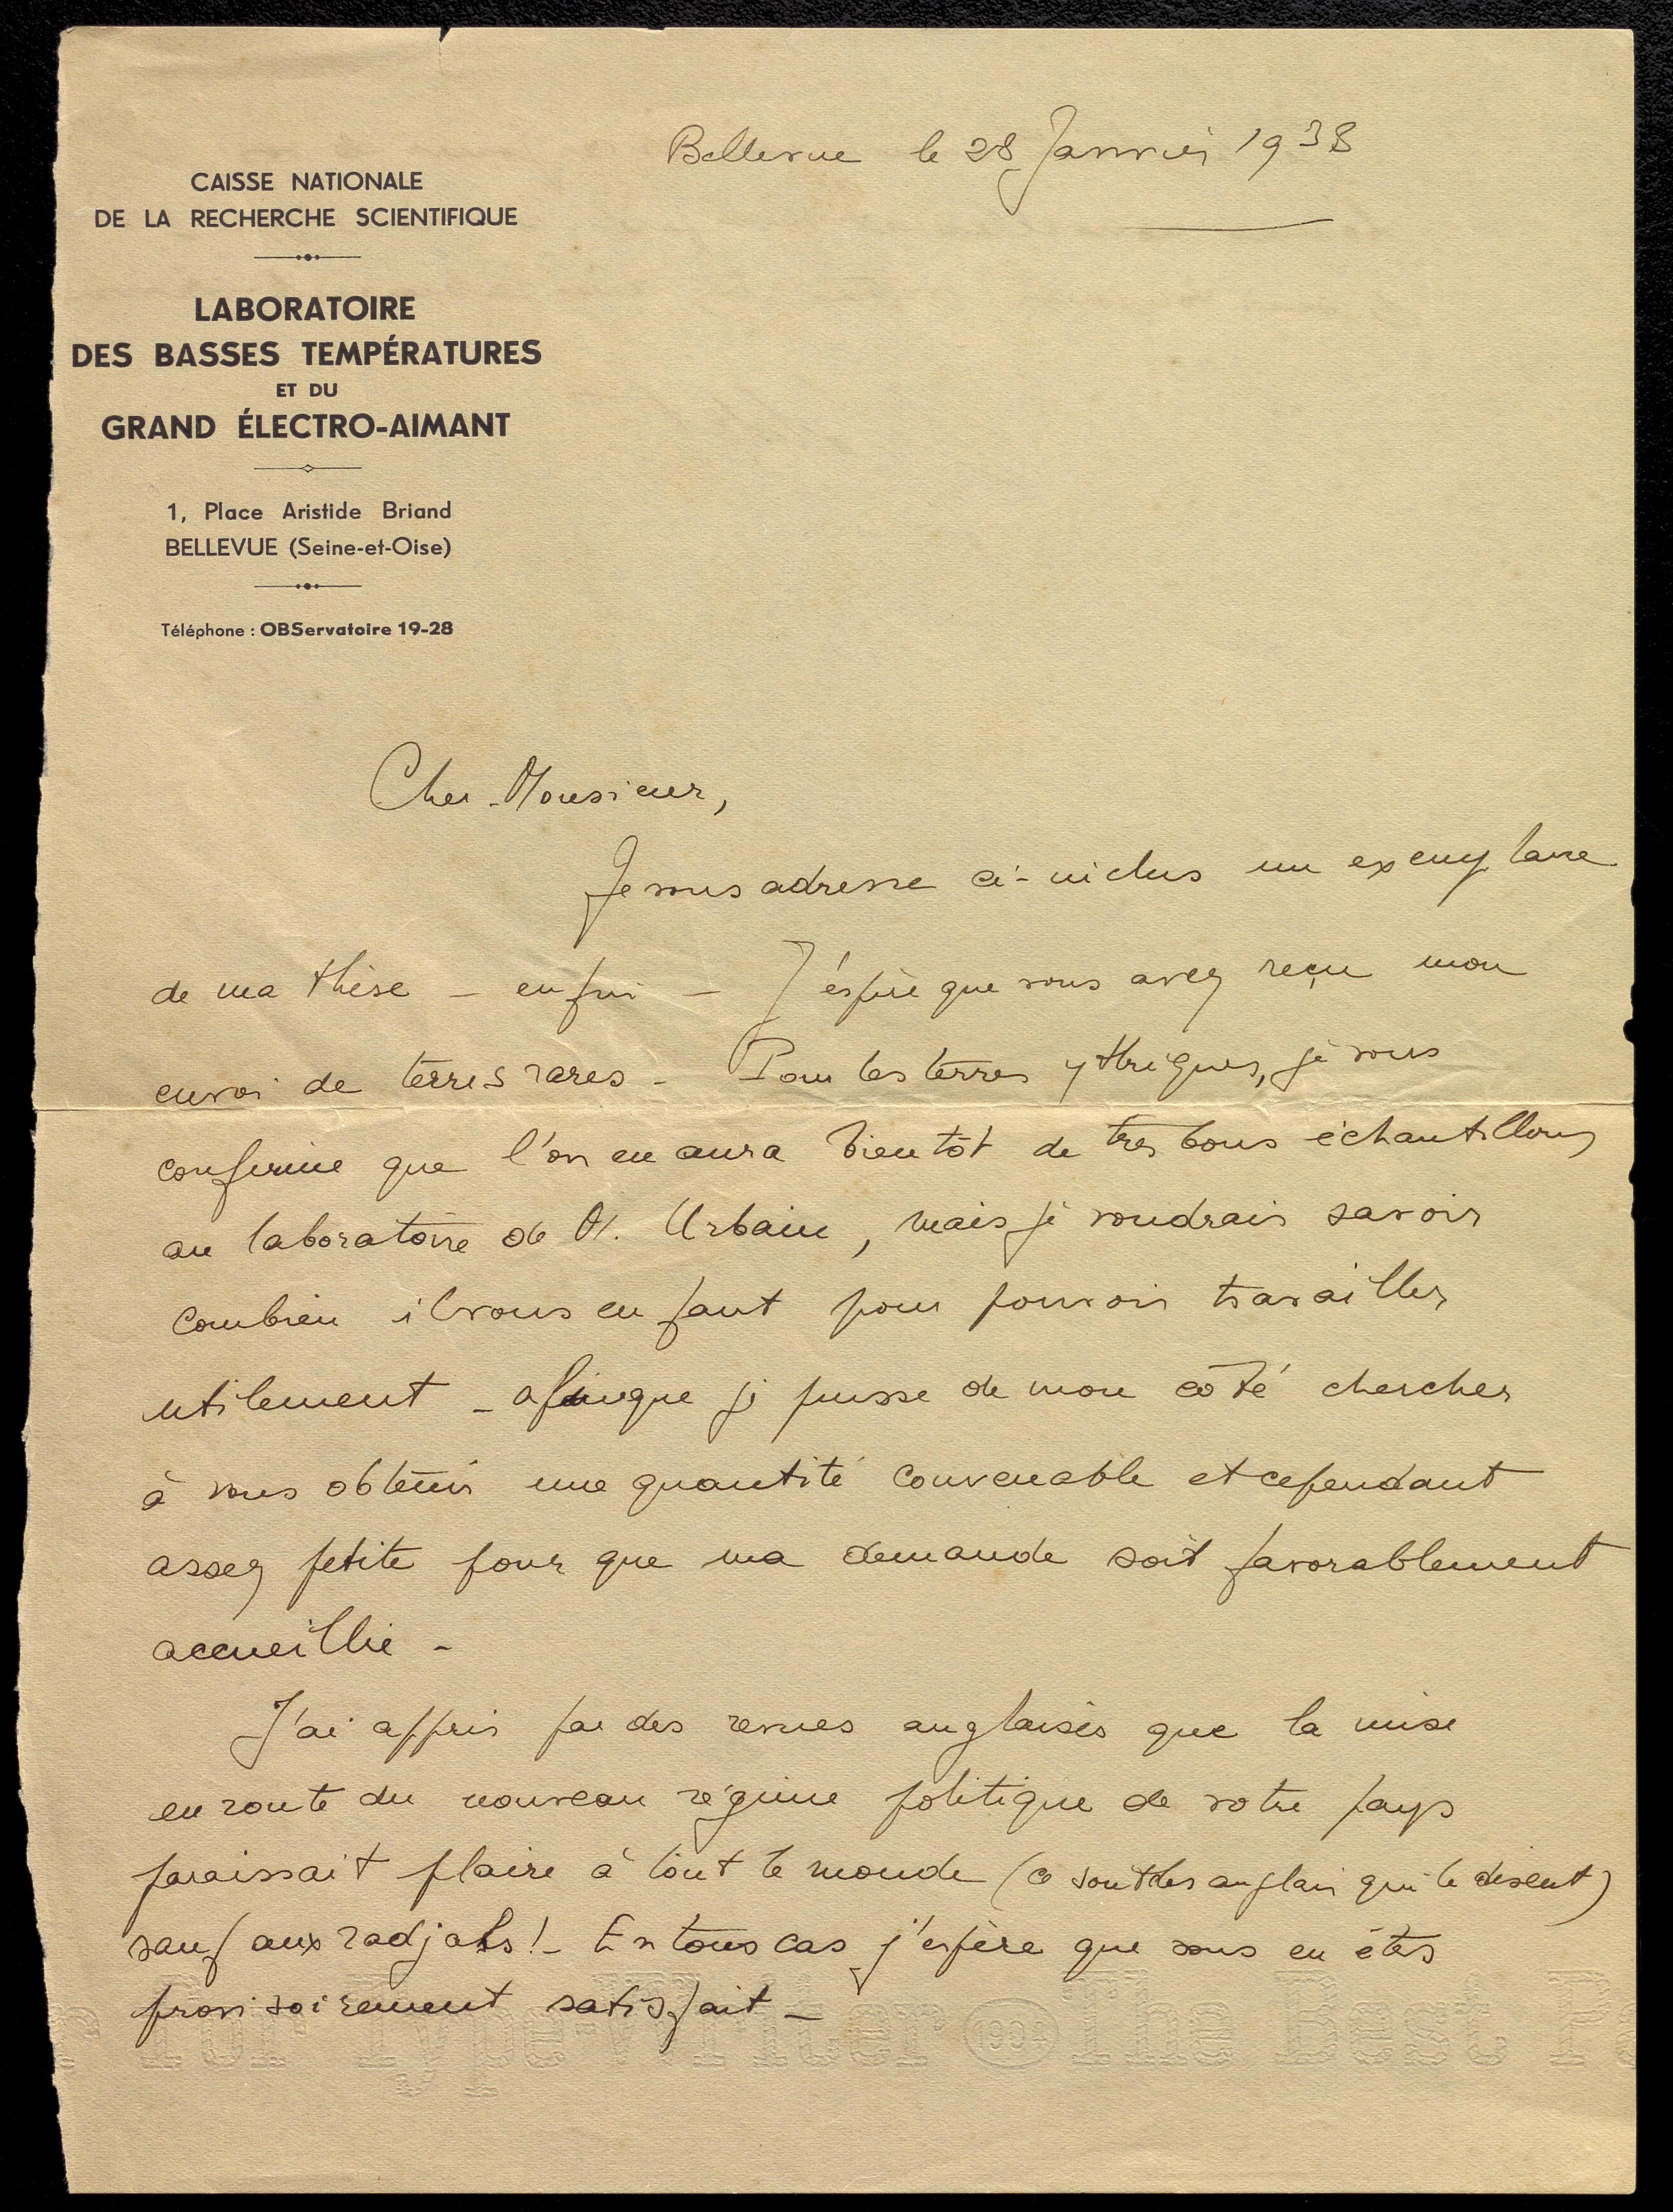 Bellevue le 28 Janvier 1938
CAISSE NATIONALE
DE LA RECHERCHE SCIENTIFIQUE
LABORATOIRE
DES BASSES TEMPÉRATURES
ET DU
GRAND ÉLECTRO-AIMANT
1, Place Aristide Briand
BELLEVUE (Seine-et-Oise)
Téléphone : OBServatoire 19-28
Cher Monsieur,
Je vous adresse ci-inclus un exemplaire
de ma thèse – enfin – J'espère que vous avez reçu mon
envoi de terres rares – Pour les terres yttriques, je vous
confirme que l'on en aura bientôt de très bons échantillons
au laboratoire de M. Urbain, mais je voudrais savoir
combien il vous en faut pour pouvoir travailler
utilement – afin que je puisse de mon côté chercher
à vous obtenir une quantité convenable et cependant
assez petite pour que ma demande soit favorablement
accueillie –
J'ai appris par des revues anglaises que la mise
en route du nouveau régime politique de votre pays
paraissait plaire à tout le monde (ce sont les anglais qui le disent)
sauf aux radjahs! – En tous cas j'espère que vous en êtes
provisoirement satisfait –
for Type-Writer 1006 The Best